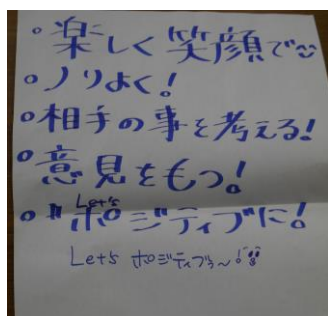 ○楽しく笑顔で
○ノリよく！
○相手の事を考える！
○意見をもつ！
Let's
○ポジティブに！
Let's ポジティブぅ〜！